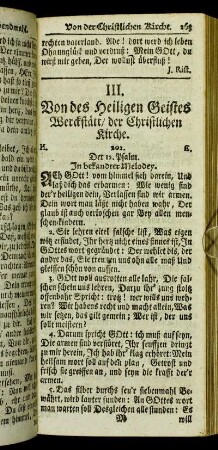 Von der Christlichen Kirche. 263
rechten vaterland. Ade! dort werd ich leben
Ohn unglück und verdruß: Mein GOtt, du
wirst mir geben, Der wollust überfluß!
J. Rist.
III.
Von des Heiligen Geistes
Werckstätt/ der Christlichen
Kirche.
201.
Der 12. Psalm.
In bekandter Melodey.
ACh GOtt! vom himmel sieh darein, Und
laß dich das erbarmen: Wie wenig sind
der heiligen dein, Verlassen sind wir armen.
Dein wort man läst nicht haben wahr, Der
glaub ist auch verloschen gar Bey allen men-
schen-kindern.
2. Sie lehren eitel falsche list, Was eigen
witz erfindet, Ihr hertz nicht eines sinnes ist, In
GOttes wort gegründet: Der wehlet diß, der
ander das, Sie trennen uns ohn alle maß Und
gleissen schön von aussen.
3. GOtt woll ausrotten alle lahr, Die fal-
schen schein uns lehren, Darzu ihr zung stoltz
offenbahr Spricht: trotz! wer wills uns weh-
ren? Wir haben recht und macht allein, Was
wir setzen, das gilt gemein: Wer ist, der uns
sollt meistern?
4. Darum spricht GOtt: ich muß auf seyn,
Die armen sind verstöret, Ihr seufzen dringt
zu mir herein, Ich hab ihr klag erhöret: Mein
heilsam wort soll auf den plan, Getrost und
frisch sie greiffen an, und seyn die kraft der
armen.
5. Das silber durchs feur siebenmahl Be-
währt, wird lauter funden: An GOttes wort
man warten soll Desgleichen alle stunden: Es
will